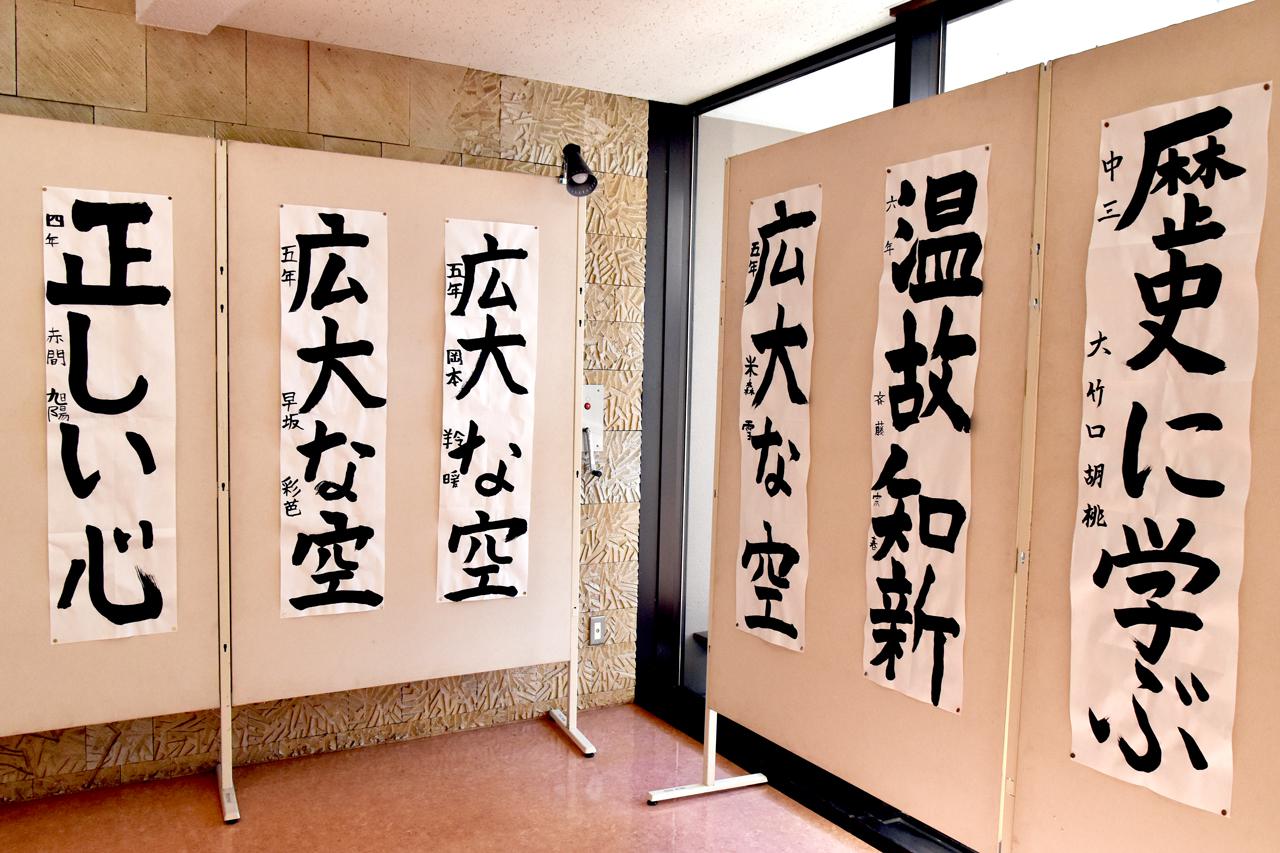 正しい心
四年 赤間 旭陽
広大な空
五年 早坂 彩芭
広大な空
五年 岡本 羚暖
広大な空
五年 米森 雪
温故知新
六年 斉藤 宗春
歴史に学ぶ
中三 大竹口胡桃